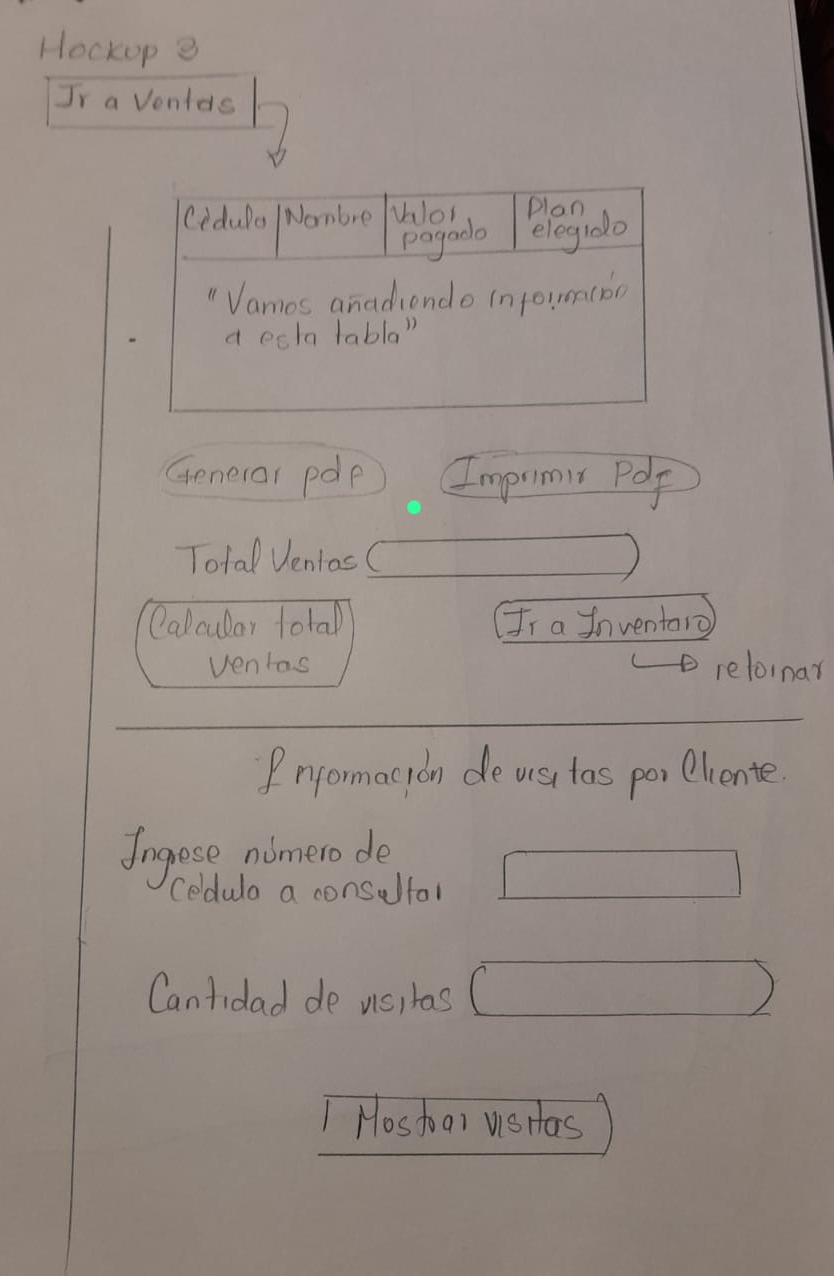 Mockup 3
Ir a Ventas
Cédula Nombre Valor pagado Plan elegido
"Vamos añadiendo información
a esta tabla"
Generar pdf Imprimir Pdf
Total Ventas
Calcular total
ventas
Ir a Inventaro
retornar
Información de visitas por Cliente.
Ingese número de
Cédula a consultar
Cantidad de visitas
Mostrar visitas